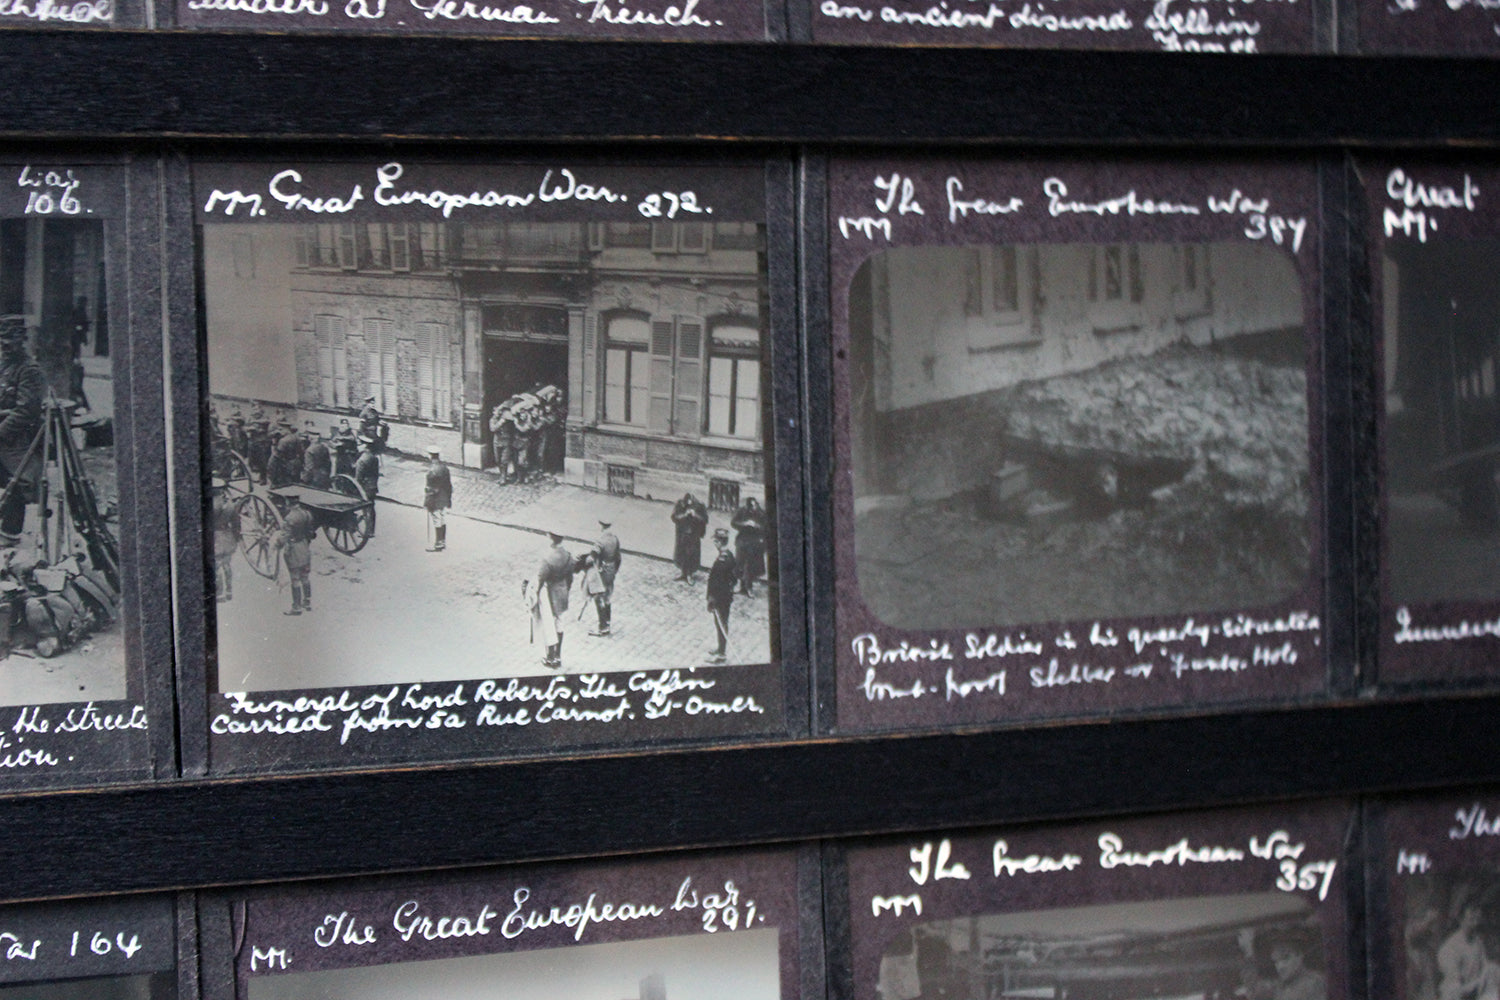 under a German Trench.
an ancient disused well in
France
War
106.
MM. Great European War. 272.
The Great European War
MM 384
Great
MM.
Funeral of Lord Roberts. The Coffin
carried from 5a Rue Carnot. St-Omer.
British Soldier in his queerly-situated
bomb-proof Shelter or Funk-Hole
the streets
tion.
The Great European War.
MM. 291.
The Great European War
MM 354
The
MM.
War 164